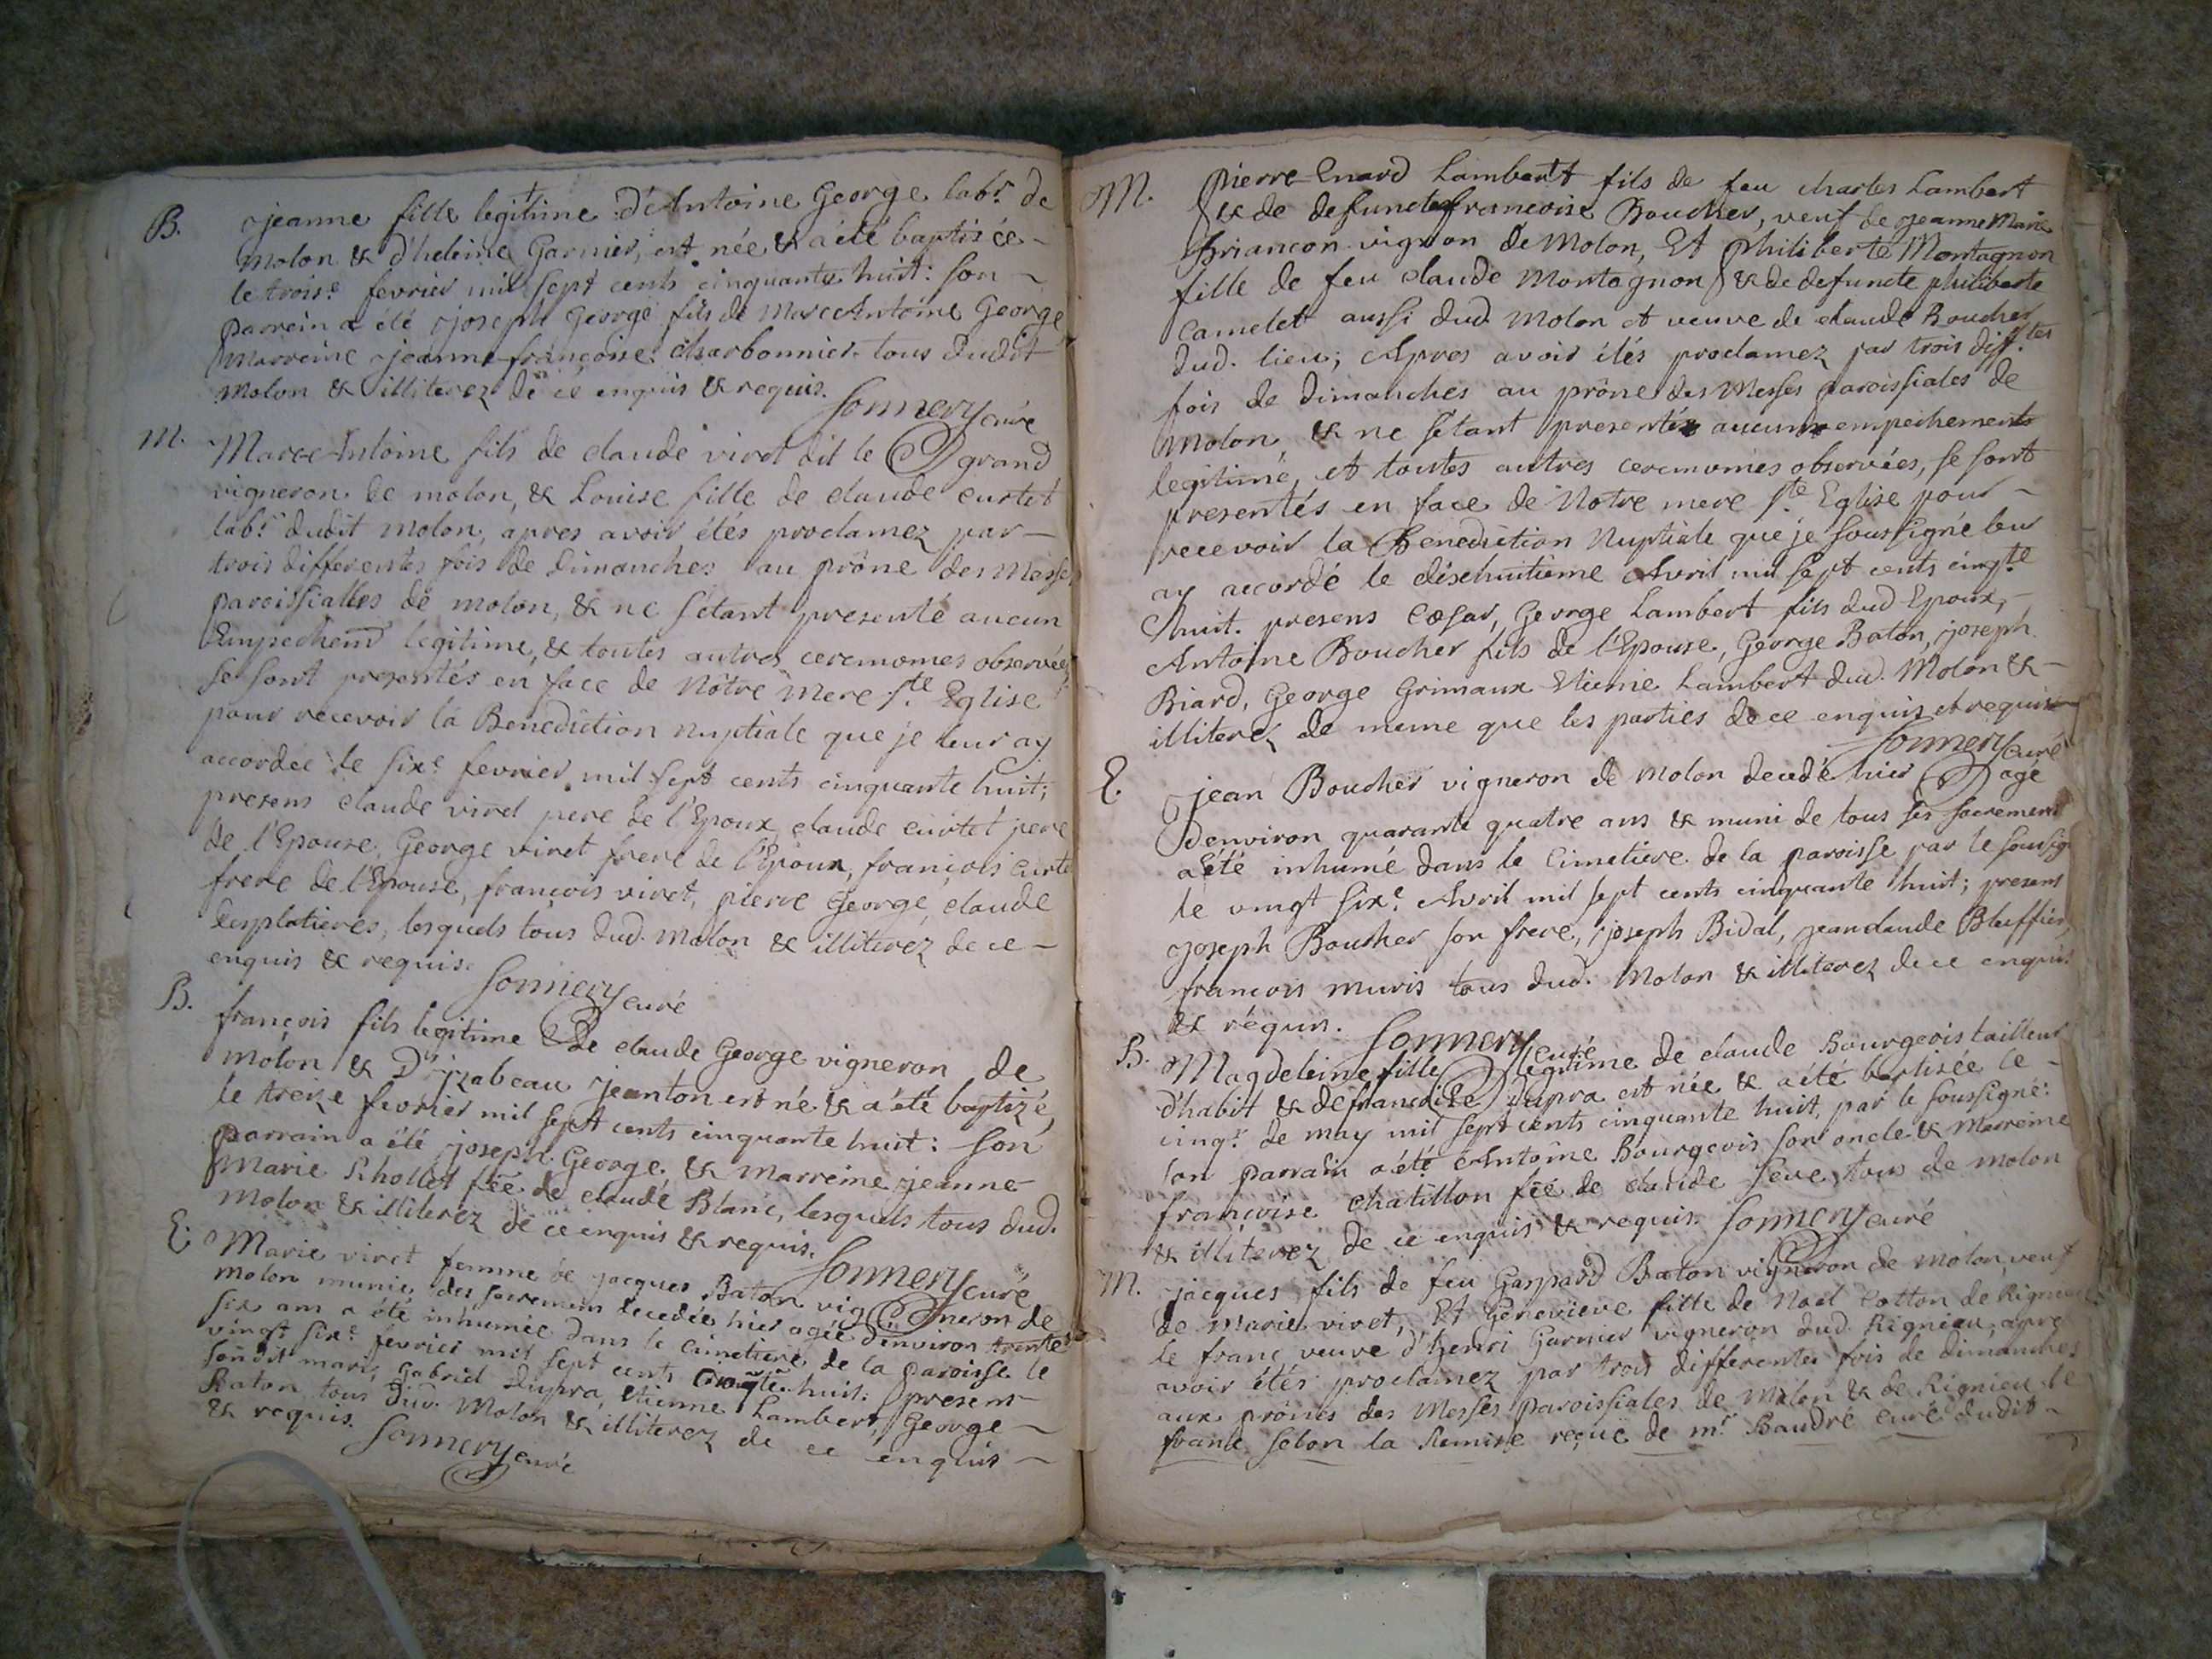 B. jeanne fille legitime d'Antoine George labr. de
molon & d'heleine Garnier, est née & a été baptisée
le troise. fevrier mil sept cents cinquante huit: son
parrein a été joseph George fils de Marc Antoine George
Marreine jeanne françoise Charbonnier tous dudit
molon & illiterez de ce enquis & requis.
Sonnery curé
M. Marc Antoine fils de claude viret dit le grand
vigneron de molon, & Louise fille de claude curtet
labr. dudit molon, apres avoir étés proclamez par
trois differentes fois de dimanches au prône des Messes
paroissialles de molon, & ne s'etant presenté aucun
Empechemt legitime, & toutes autres ceremonies observées,
se sont presentés en face de Nôtre mere ste. Eglise
pour recevoir la Benediction nuptiale que je leur ay
accordée le sixe. fevrier mil sept cents cinquante huit;
presens claude viret pere de l'Epoux, claude curtet pere
de l'Epouse, George viret frere de l'Epoux, françois curte
frere de l'Epouse, françois viret, pierre George, claude
Desplatieres, lesquels tous dud. molon & illiterez de ce
enquis & requis.
Sonnery curé
B. françois fils legitime de claude George vigneron de
molon & D'jzabeau jeanton est né & a été baptizé,
le treize fevrier mil sept cents cinquante huit: son
parrain a été joseph George & marreine jeanne
Marie Rhollet fée de claude Blanc, lesquels tous dud.
molon & illiterez de ce enquis & requis.
Sonnery curé
E. Marie viret femme de jacques Baton vigneron de
molon munie des sacremens decedée hier agée d'environ trente
six ans a été inhumée dans le cimetiere de la paroisse le
vingt sixe. fevrier mil sept cents cinqte. huit: presens
sondit mari, Gabriel Dupra, Etienne Lambert, George
Baton, tous dud. Molon & illiterez de ce enquis
& requis. Sonnery curé
M. Pierre Enard Lambert fils de feu charles Lambert
& de defuncte francoise Boucher, veuf de jeanne Marie
Briancon vigñon de Molon, Et Philiberte Montagnon
fille de feu claude Montagnon & de defuncte philiberte
Camelet aussi dud. Molon et veuve de claude Boucher
dud. lieu; Apres avoir étés proclamez par trois difftes
fois de dimanches au prône des Messes paroissiales de
Molon & ne s'etant presenté aucun empechement
legitime, et toutes autres ceremonies observées, se sont
presentés en face de Notre mere ste. Eglise pour
recevoir la Benediction Nuptiale que je soussigné leur
ay accordé le dixhuitieme Avril mil sept cents cinqte.
huit. presens Cæsar, George Lambert fils dud Epoux,
Antoine Boucher fils de l'Epouse, George Baton, joseph
Biard, George Grimaux Etiene Lambert dud. Molon &
illiterez de meme que les parties de ce enquis et requis
Sonnery curé
E. jean Boucher vigneron de molon decedé hier agé
d'environ quarante quatre ans & muni de tous ses sacremens
a été inhumé dans le Cimetiere de la paroisse par le soussig
le vingt sixe. Avril mil sept cents cinquante huit; presens
joseph Boucher son frere, joseph Bidal, jean claude Bluffier,
francois muris tous dud. Molon & illiterez de ce enquis
& requis. Sonnery curé
B. Magdeleine fille legitime de claude Bourgeois tailleur
d'habit & de francoise Dupra est née & a été batisée le
cinqe. de may mil sept cents cinquante huit, par le soussigné:
son parrain a été Antoine Bourgeois son oncle & marreine
francoise chatillon fée de claude seve, tous de molon
& illiterez de ce enquis & requis. Sonnery curé
M. jacques fils de feu Gaspard Baton vigneron de molon, veuf
de Marie viret, Et Genevieve fille de Noel Cotton de Rigneu
le franc veuve d'henri Garnier vigneron dud. Rignieu, apre
avoir étés proclamez par trois differentes fois de dimanches
aux prônes des Messes paroissiales de Molon & de Rignieu le
franc selon la Remise reçuë de mr. Baudré curé dudit